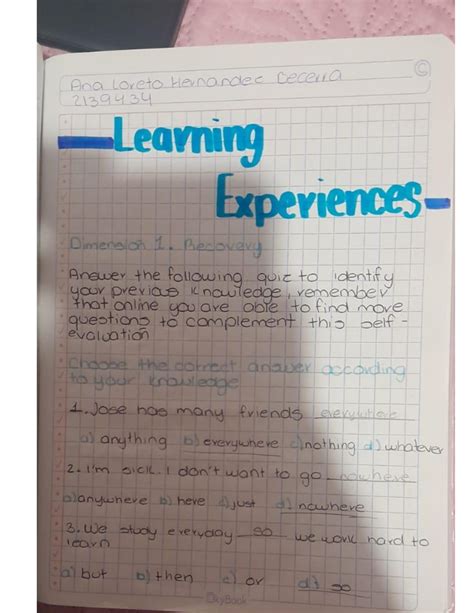 Ana Loreto Hernandez Becerra
2139434
Learning
Experiences
Dimension 1. Recovery
Answer the following quiz to identify
your previous knowledge, remember
that online you are able to find more
questions to complement this self-
evaluation
Choose the correct answer according
to your knowledge
1. Jose has many friends everywhere
a) anything b) everywhere c) nothing d) whatever
2. I'm sick. I don't want to go nowhere
a) anywhere b) here c) just d) nowhere
3. We study everyday so we work hard to
learn
a) but b) then c) or d) so